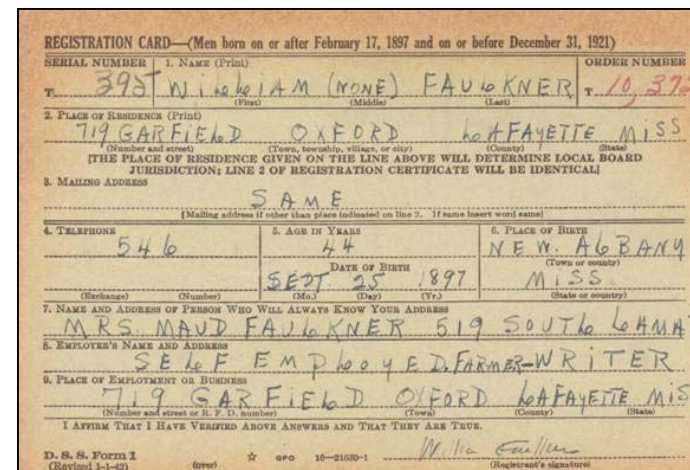 REGISTRATION CARD—(Men born on or after February 17, 1897 and on or before December 31, 1921)
SERIAL NUMBER 1. NAME (Print) ORDER NUMBER
T 395 WiLLIAM (NONE) FAULKNER T 10,376
(First) (Middle) (Last)
2. PLACE OF RESIDENCE (Print)
719 GARFIELD OXFORD LAFAYETTE MISS
(Number and street) (Town, township, village, or city) (County) (State)
[THE PLACE OF RESIDENCE GIVEN ON THE LINE ABOVE WILL DETERMINE LOCAL BOARD
JURISDICTION; LINE 2 OF REGISTRATION CERTIFICATE WILL BE IDENTICAL]
3. MAILING ADDRESS
SAME
[Mailing address if other than place indicated on line 2. If same insert word same]
4. TELEPHONE 5. AGE IN YEARS 6. PLACE OF BIRTH
546 44 NEW. ALBANY
DATE OF BIRTH (Town or county)
SEPT 25 1897 MISS
(Exchange) (Number) (Mo.) (Day) (Yr.) (State or country)
7. NAME AND ADDRESS OF PERSON WHO WILL ALWAYS KNOW YOUR ADDRESS
MRS MAUD FAULKNER 519 SOUTH LAMA
8. EMPLOYER'S NAME AND ADDRESS
SELF EMPLOYED. FARMER-WRITER
9. PLACE OF EMPLOYMENT OR BUSINESS
719 GARFIELD OXFORD LAFAYETTE MIS
(Number and street or R. F. D. number) (Town) (County) (State)
I AFFIRM THAT I HAVE VERIFIED ABOVE ANSWERS AND THAT THEY ARE TRUE.
D. S. S. Form 1 GPO 16—21630-1 William Faulkner
(Revised 1-1-42) (over) (Registrant's signature)